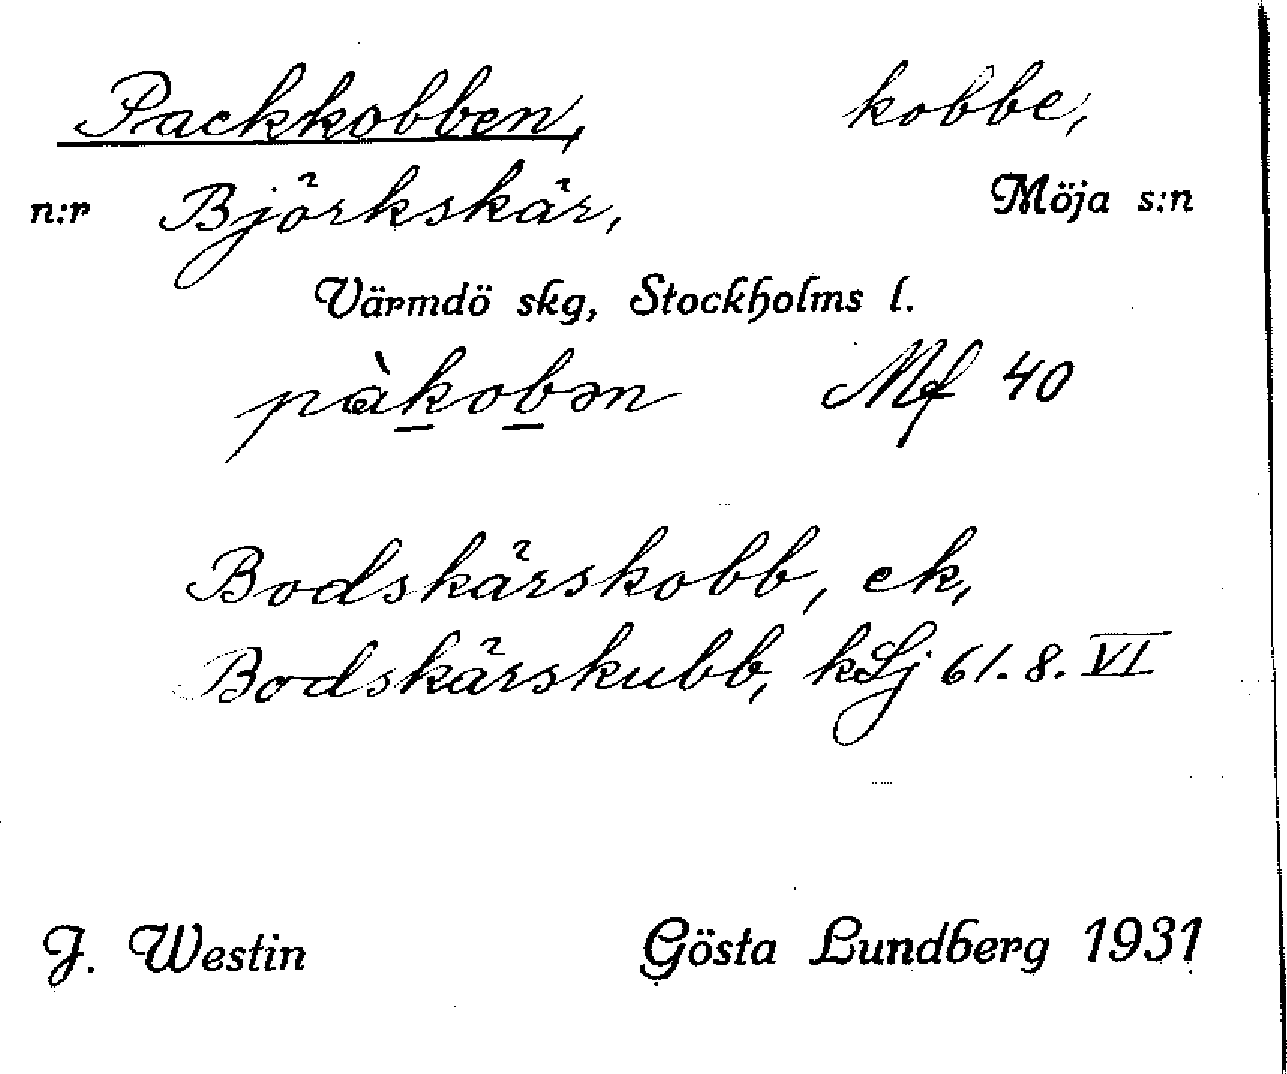 Packkobben, kobbe,
n:r Björkskär, Möja s:n
Värmdö skg, Stockholms l.
pàkobən Mf 40
Bodskärskobb, ek,
Bodskärskubb, kLj 61.8.VI
J. Westin Gösta Lundberg 1931